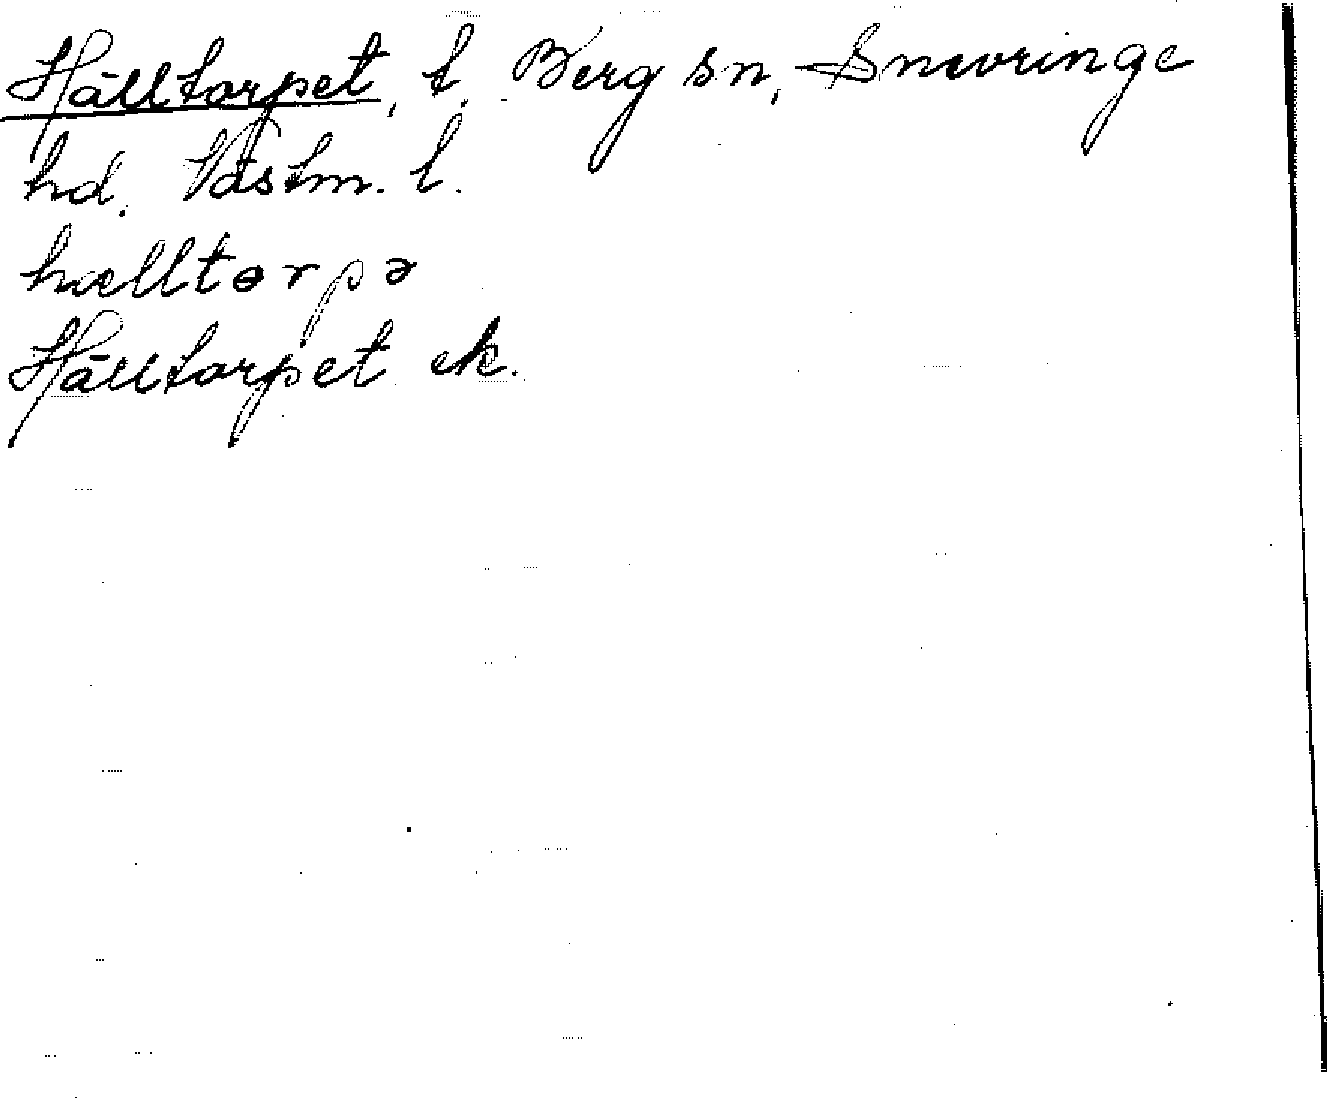 Hälltorpet, t. Berg sn, Snevringe
hd. Västm. l.
hælltɵrpə
Hälltorpet ek.